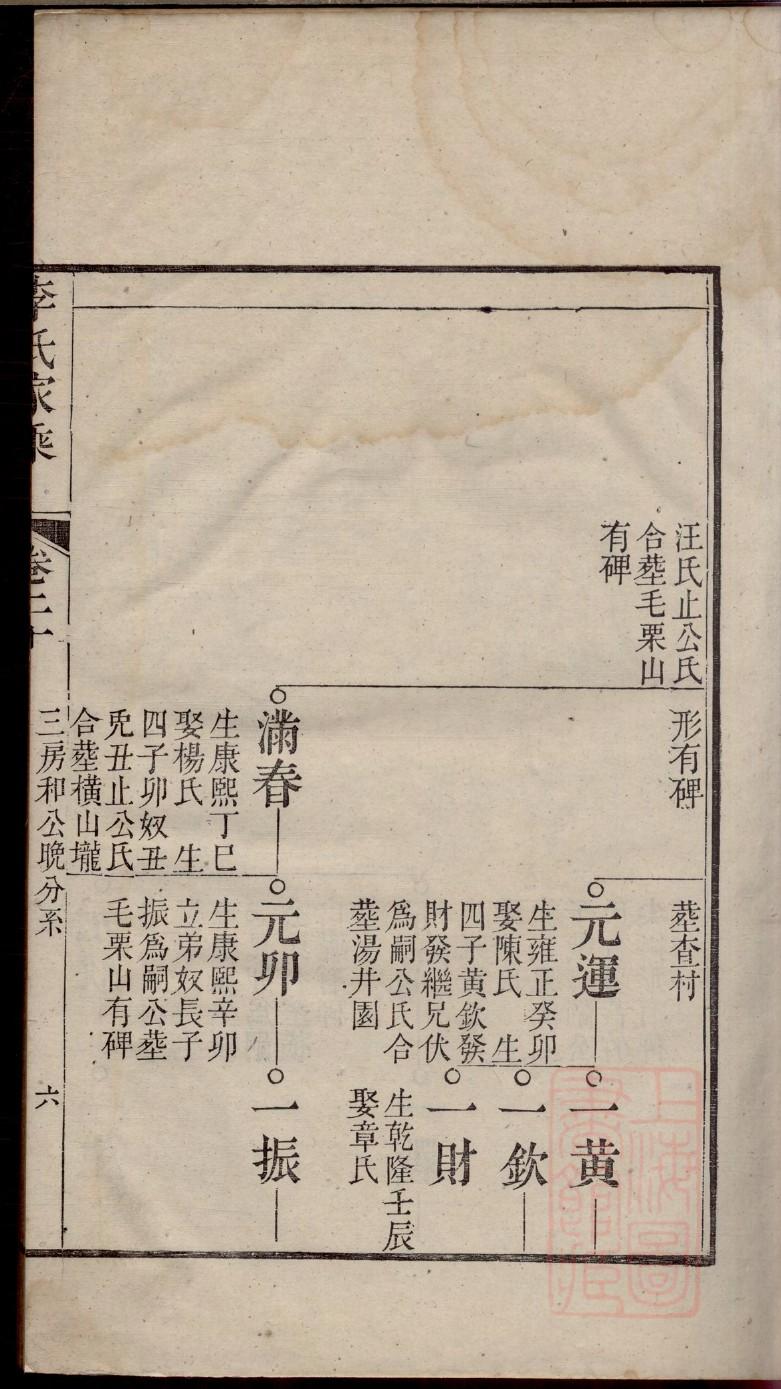 汪氏止公氏
合塟毛栗山
有碑
形有碑
塟查村
元運
生雍正癸卯
娶陳氏　生
四子黃欽發
財發繼兄伏
為嗣公氏合
塟湯井園
一黃
一欽
一財
生乾隆壬辰
娶章氏
滿春
生康熙丁巳
娶楊氏　生
四子卯奴丑
兎丑止公氏
合塟橫山壠
元卯
生康熙辛卯
立弟奴長子
振為嗣公塟
毛栗山有碑
一振
李氏家乘
卷二十
三房和公晚分系
六
上海圖書館藏